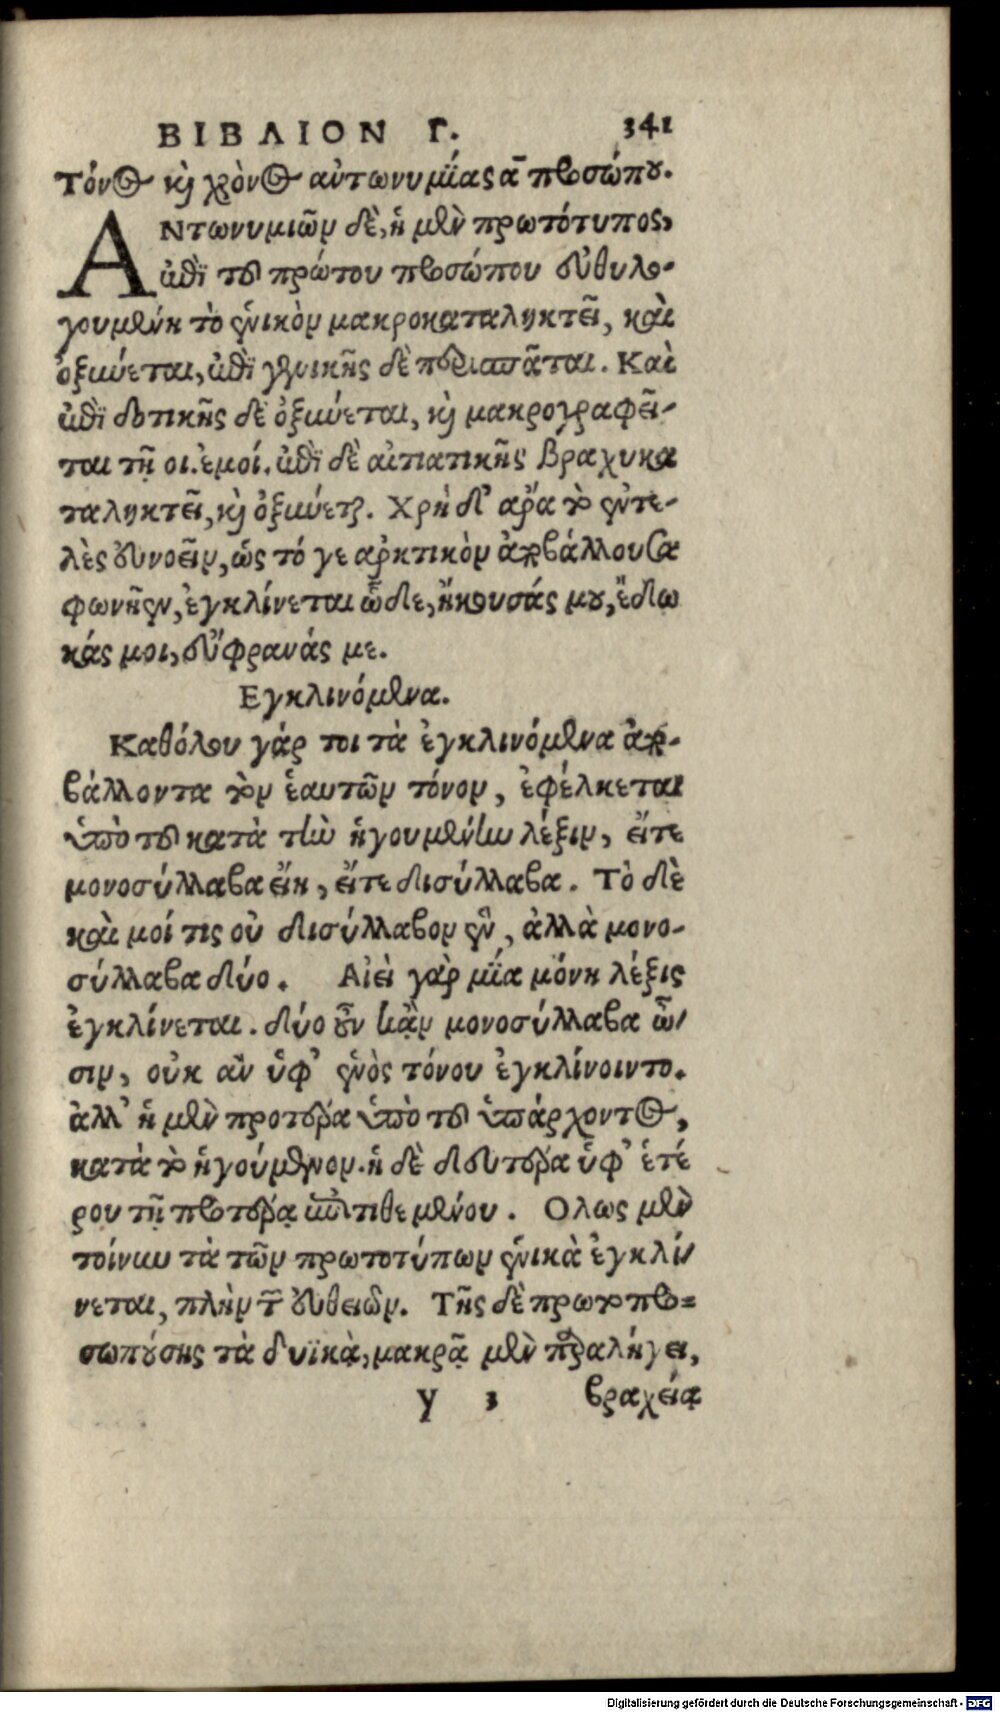 ΒΙΒΛΙΟΝ Γ. 341
Τόνος καὶ χρόνος αὐτωνυμίας α πρσώπου.
ΑΝτωνυμιῶν δὲ, ἡ μὲν πρωτότυπος,
ἐπὶ τοῦ πρώτου προσώπου εὐθυλο-
γουμένη τὸ ἑνικὸν μακροκαταληκτεῖ, καὶ
ὀξύνεται, ἐπὶ γενικῆς δὲ περισπᾶται. Καὶ
ἐπὶ δοτικῆς δὲ ὀξύνεται, καὶ μακρογραφεῖ-
ται τῇ οι. ἐμοί. ἐπὶ δὲ αἰτιατικῆς βραχυκα
ταληκτεῖ, καὶ ὀξύνεται. Χρὴ δ' ἄρα τὸ ἐντε-
λὲς συνοεῖν, ὡς τό γε ἀρκτικὸν ἀποβάλλουσα
φωνῆεν, ἐγκλίνεται ὧδε, ἤκουσάς μου, ἔδω
κάς μοι, εὔφρανάς με.
Εγκλινόμενα.
Καθόλου γάρ τοι τὰ ἐγκλινόμενα ἀπο-
βάλλοντα τὸν ἑαυτῶν τόνον, ἐφέλκεται
ὑπὸ τοῦ κατὰ τὴν ἡγουμένην λέξιν, εἴτε
μονοσύλλαβα εἴη, εἴτε δισύλλαβα. Τὸ δὲ
καὶ μοί τις οὐ δισύλλαβον ἓν, ἀλλὰ μονο-
σύλλαβα δύο. Αἰεὶ γὰρ μία μόνη λέξις
ἐγκλίνεται. δύο οὖν κἂν μονοσύλλαβα ὦ-
σιν, οὐκ ἂν ὑφ' ἑνὸς τόνου ἐγκλίνοιντο.
ἀλλ' ἡ μὲν προτέρα ὑπὸ τοῦ ὑπάρχοντος,
κατὰ τὸ ἡγούμενον. ἡ δὲ δευτέρα ὑφ' ἑτέ
ρου τῇ προτέρᾳ ἐπιτιθεμένου. Ολως μὲν
τοίνυν τὰ τῶν πρωτοτύπων ἑνικὰ ἐγκλί-
νεται, πλὴν τῶν εὐθειῶν. Τῆς δὲ πρωτοπρο-
σωπούσης τὰ δυϊκὰ, μακρᾷ μὲν παραλήγει,
y 3 βραχείᾳ
Digitalisierung gefördert durch die Deutsche Forschungsgemeinschaft - DFG